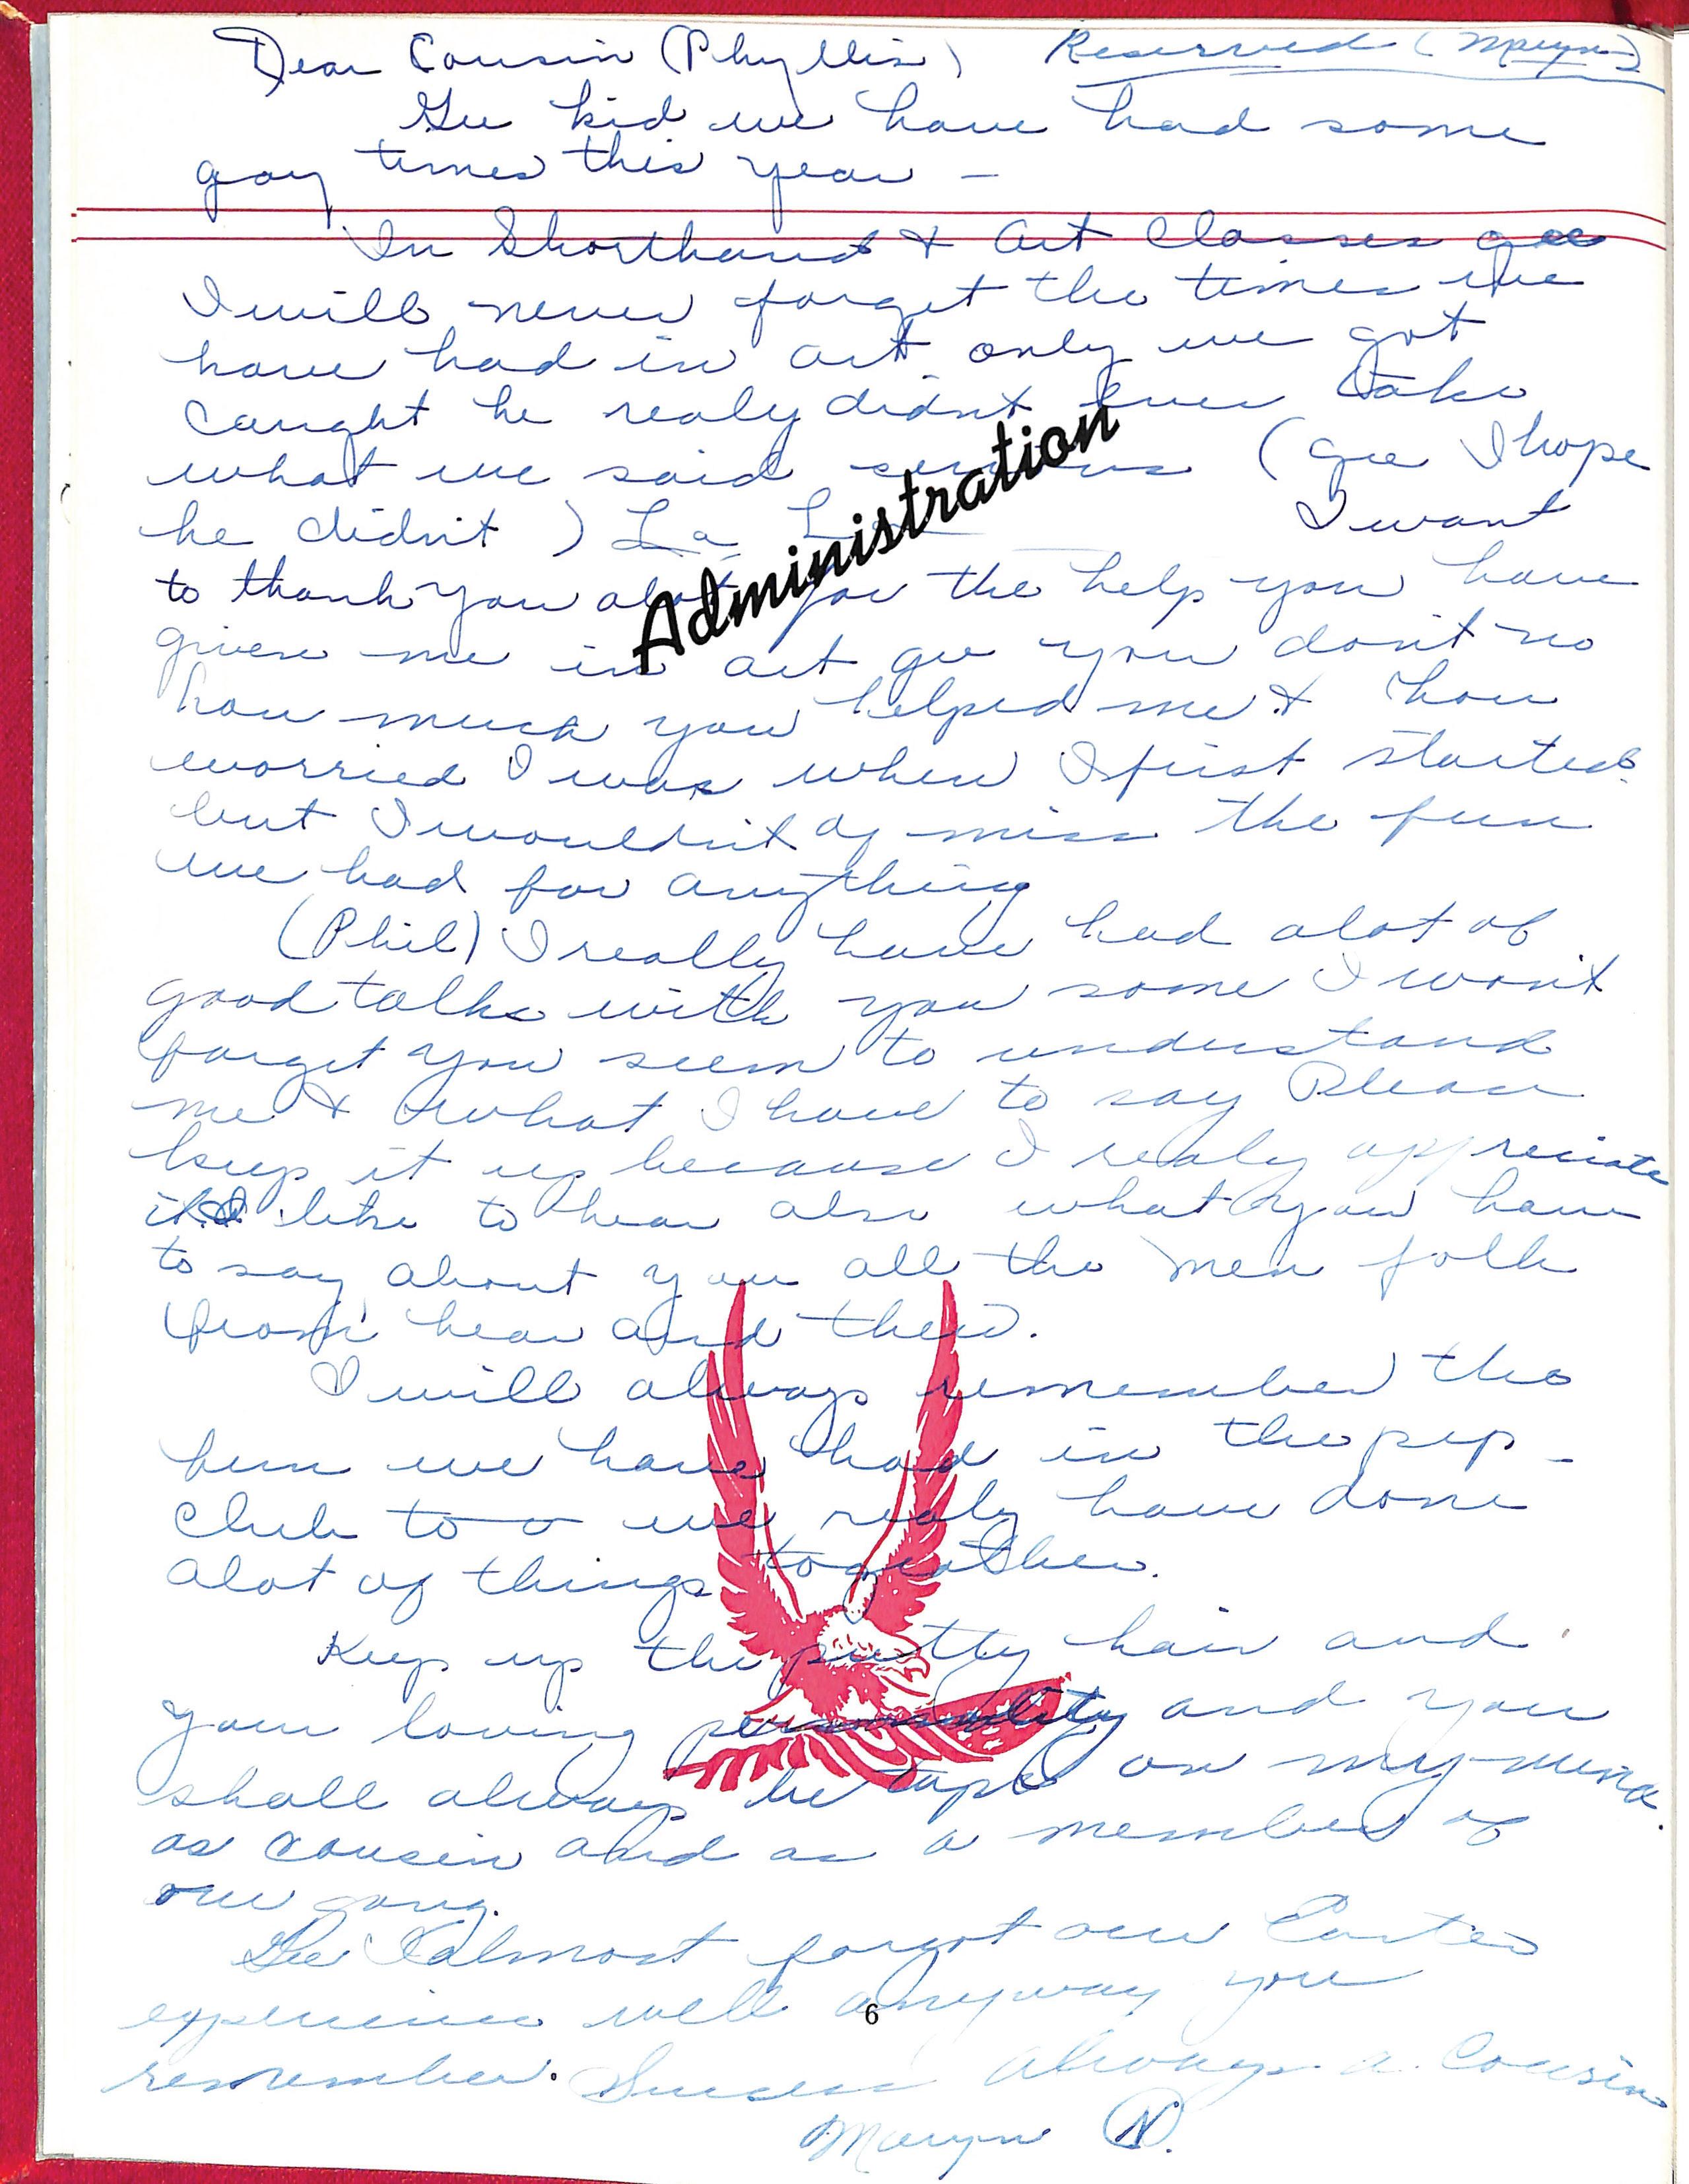 Dear Cousin (Phyllis) Reserved (Maryn)
Gee kid we have had some
gay times this year –
In Shorthand & Art Classes
I will never forget the times we
have had in art only we got
caught he realy didnt ever take
what we said serious (gee I hope
he didn't) La La I want
to thank you alot for the help you have
Administration
given me in art gee you don't no
how much you helped me & how
worried I was when I first started.
but I wouldn't of miss the fun
we had for anything
(Phil) I really have had alot of
good talks with you some I won't
forget you seem to understand
me & what I have to say Please
keep it up because I realy appreciate
it. I like to hear also what you have
to say about you all the men folk
from hear and their.
I will always remember the
fun we have had in the pep-
club to o we realy have done
alot of things togeather.
Keep up the pretty hair and
your loving personality and you
shall always be tops on my mind.
as cousin and as a member of
our gang.
Gee I almost forgot our Easter
experience well anyway you
6
remember. Success always a Cousin
Maryn N.